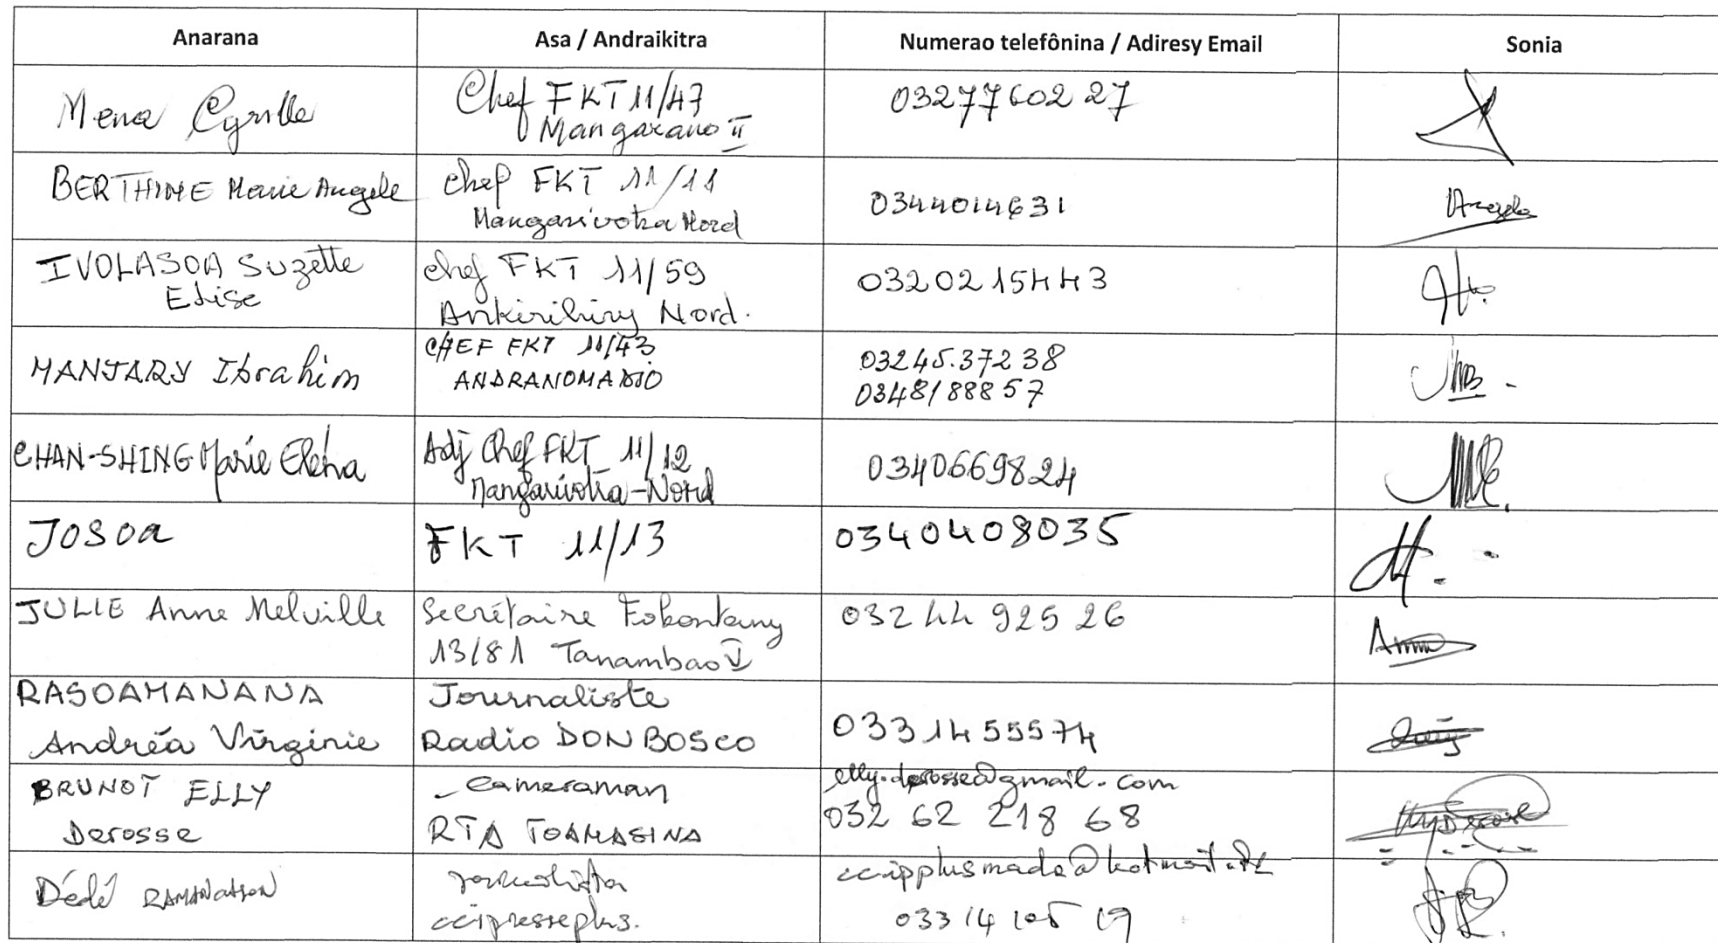 Anarana
Asa / Andraikitra
Numerao telefônina / Adiresy Email
Sonia
Mena Cyrille
Chef FKT 11/47
Mangarano II
0327760227
BERTHINE Marie Angele
Chef FKT 11/11
Mangarivotra Nord
0344014631
Angele
IVOLASOA Suzette
Elise
chef FKT 11/59
Ankirihiry Nord.
0320215443
MANJARY Ibrahim
CHEF FKT 11/43
ANDRANOMADIO
03245.37238
0348188857
CHAN-SHING Marie Elena
Adj Chef FKT 11/12
Mangarivotra-Nord
0340669824
JOSOA
FKT 11/13
0340408035
JULIE Anne Melville
Secrétaire Fokontany
13/81 Tanambao V
032 44 925 26
RASOAMANANA
Andréa Virginie
Journaliste
Radio DON BOSCO
0331455574
BRUNOT ELLY
Derosse
- Cameraman
RTA TOAMASINA
elly.derosse@gmail.com
032 62 218 68
Dédé
ccipresseplus.
033 14 105 19